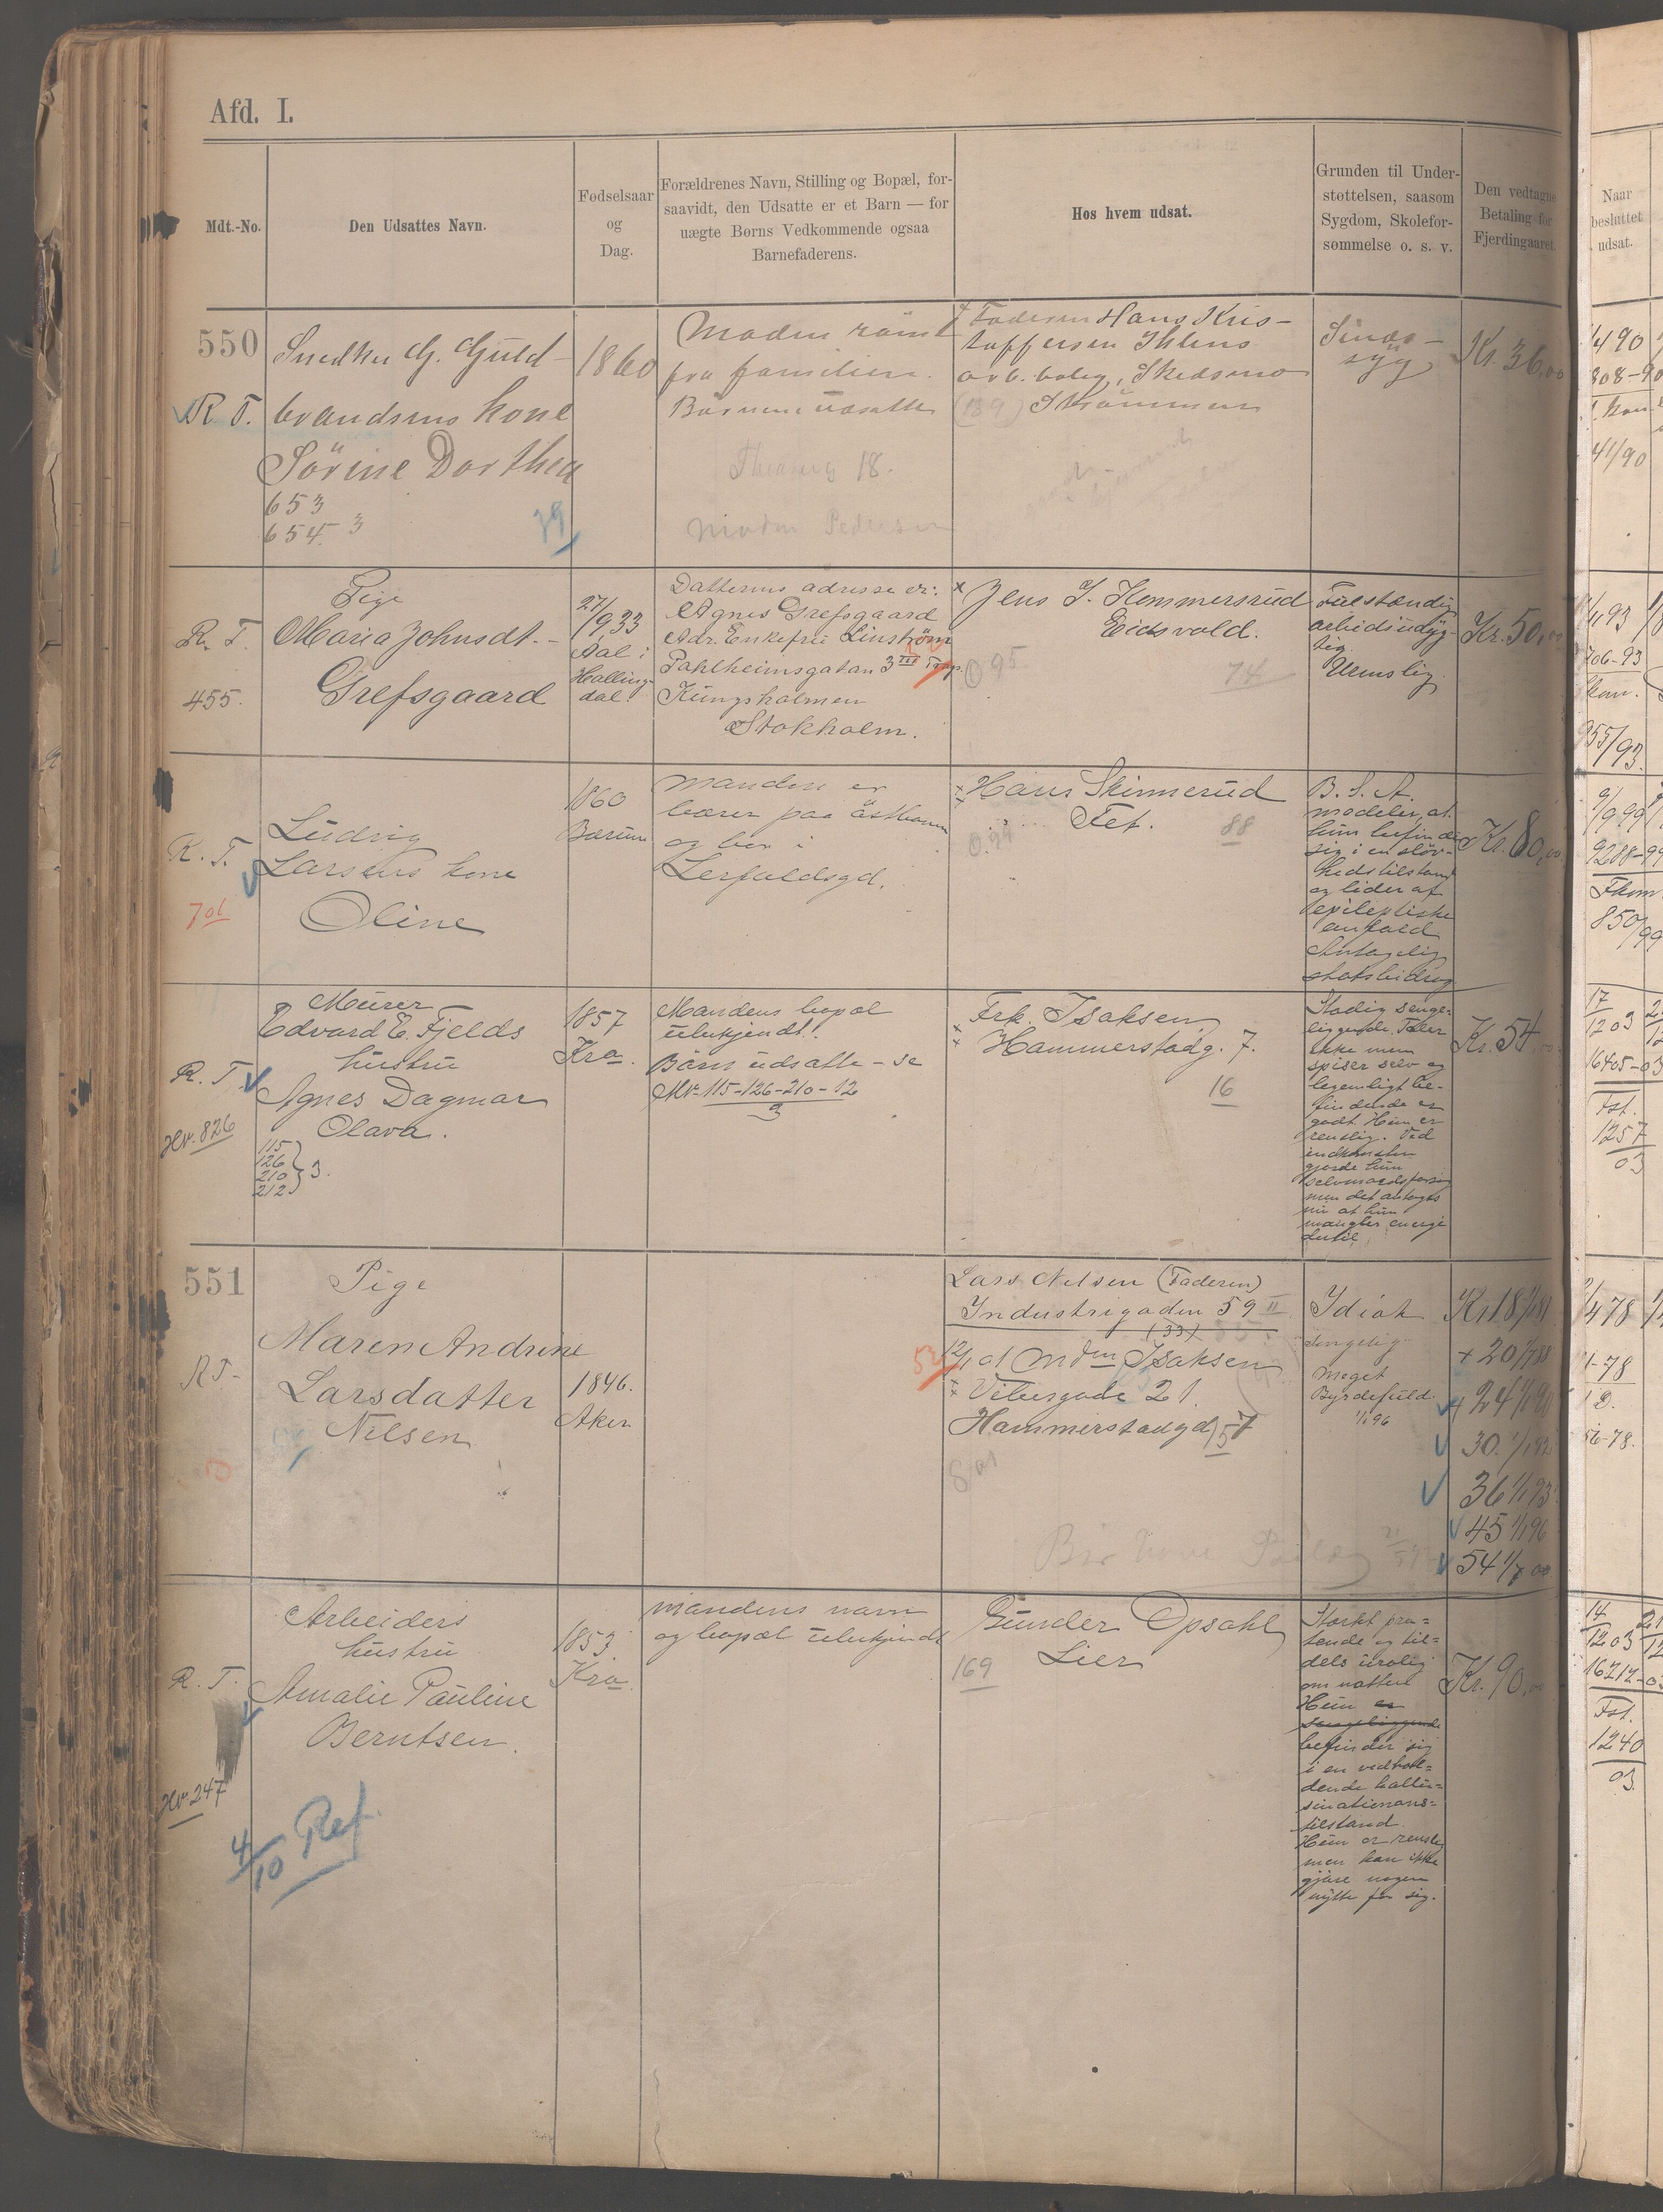 Afd. I.
Mdt.-No.
Den Udsattes Navn.
Fødselsaar
og
Dag.
Forældrenes Navn, Stilling og Bopæl, for-
saavidt, den Udsatte er et Barn — for
uægte Børns Vedkommende ogsaa
Barnefaderens.
Hos hvem udsat.
Grunden til Under-
støttelsen, saasom
Sygdom, Skolefor-
sømmelse o. s. v.
Den vedtagne
Betaling for
Fjerdingaaret.
Naar
besluttet
udsat.
550
R T.
Snedker G. Guld-
brandsens kone
Sörine Dorthea
653
654. 3
39
1860
Manden römt
fra familien.
Börnene udsatte
18.
Manden Pedersen
Faderen Hans Kris-
toffersen Ihlens
arb. bolig, Skedsmo
(189) Strömmen
Sinds-
syg
Kr. 36,00
R. T.
455.
Pige
Maria Johnsdt.-
Grefsgaard
27/9 33
Aal i
Halling-
dal.
Datterens adresse er:
Agnes Grefsgaard
Adr. Enkefru Linström
Pahlheimsgatan 3 III Trap.
Kungsholmen
Stokholm.
+ Jens J. Hemmersrud
Eidsvold.
0 95
74
Fuldstændig
arbeidsudyg-
tig
Urenslig.
Kr. 50,00
R. T.
701
Ludvig
Larsens kone
Oline
1860
Bærum
Manden er
bærer paa östbanen
og bor i
Lerfaldsgd.
Hans Skinnerud
Fet.
88
B. S. A.
meddeler, at
hun befinder
sig i en slöv-
hedstilstand
og lider af
epileptiske
anfald
Antagelig
statsbidrag
Kr. 60,00
R. T.
Hv. 826
Murer
Edvard E. Fjelds
hustru
Agnes Dagmar
Olava.
115
126
210
212
3.
1857
Kra.
Mandens bopæl
ubekjendt.
Börn udsatte - se
Nr. 115-126-210-12
3
Frk. Isaksen
Hammerstadg. 7.
16
Stadig senge-
liggende. Taler
ikke men
spiser selv og
legemligt be-
findende er
godt. Hun er
renslig. Ved
indkomsten
gjorde hun
selvmordsforsög
men det antages
nu at hun
mangler energi
dertil.
Kr. 54,00
551
RT.
Pige
Maren Andrine
Larsdatter
Nilsen
1846.
Aker
Lars Nilsen (Faderen)
Industrigaden 59 II
(33)
12/1 01 Mdm Isaksen
Vibesgade 21.
Hammerstadgd 7
57
Idiot
Sengelig
Meget
Byrdefuld.
1/1 96
Kr 18 1/1 81
+ 20 1/7 88
+ 24 1/1 90
30. 1/1 92
36 1/1 93
45 1/1 96
54 1/7 00
R. T.
Hv. 247
Arbeiders
hustru
Amalie Pauline
Berntsen.
4/10 Ref.
1853
Kra.
Mandens navn
og bopæl ubekjendt
Gunder Opsahl
Lier
169
Stærkt pra-
tende og til-
dels urolig
om natten
Hun er
sengeliggende
befinder sig
i en vedhol-
dende hallu-
sinations-
tilstand.
Hun er renslig
men kan ikke
gjöre nogen
nytte for sig.
Kr. 90,00